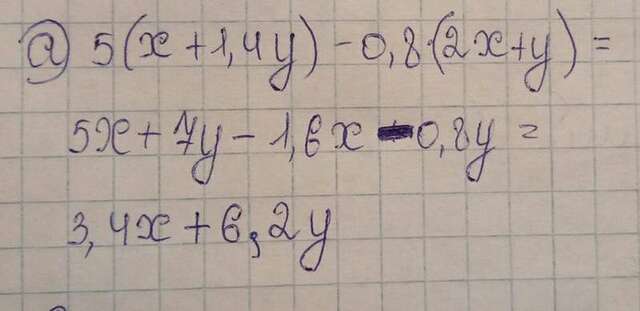 а) 5(x+1,4y)-0,8·(2x+y)=
5x+7y-1,6x-0,8y=
3,4x+6,2y